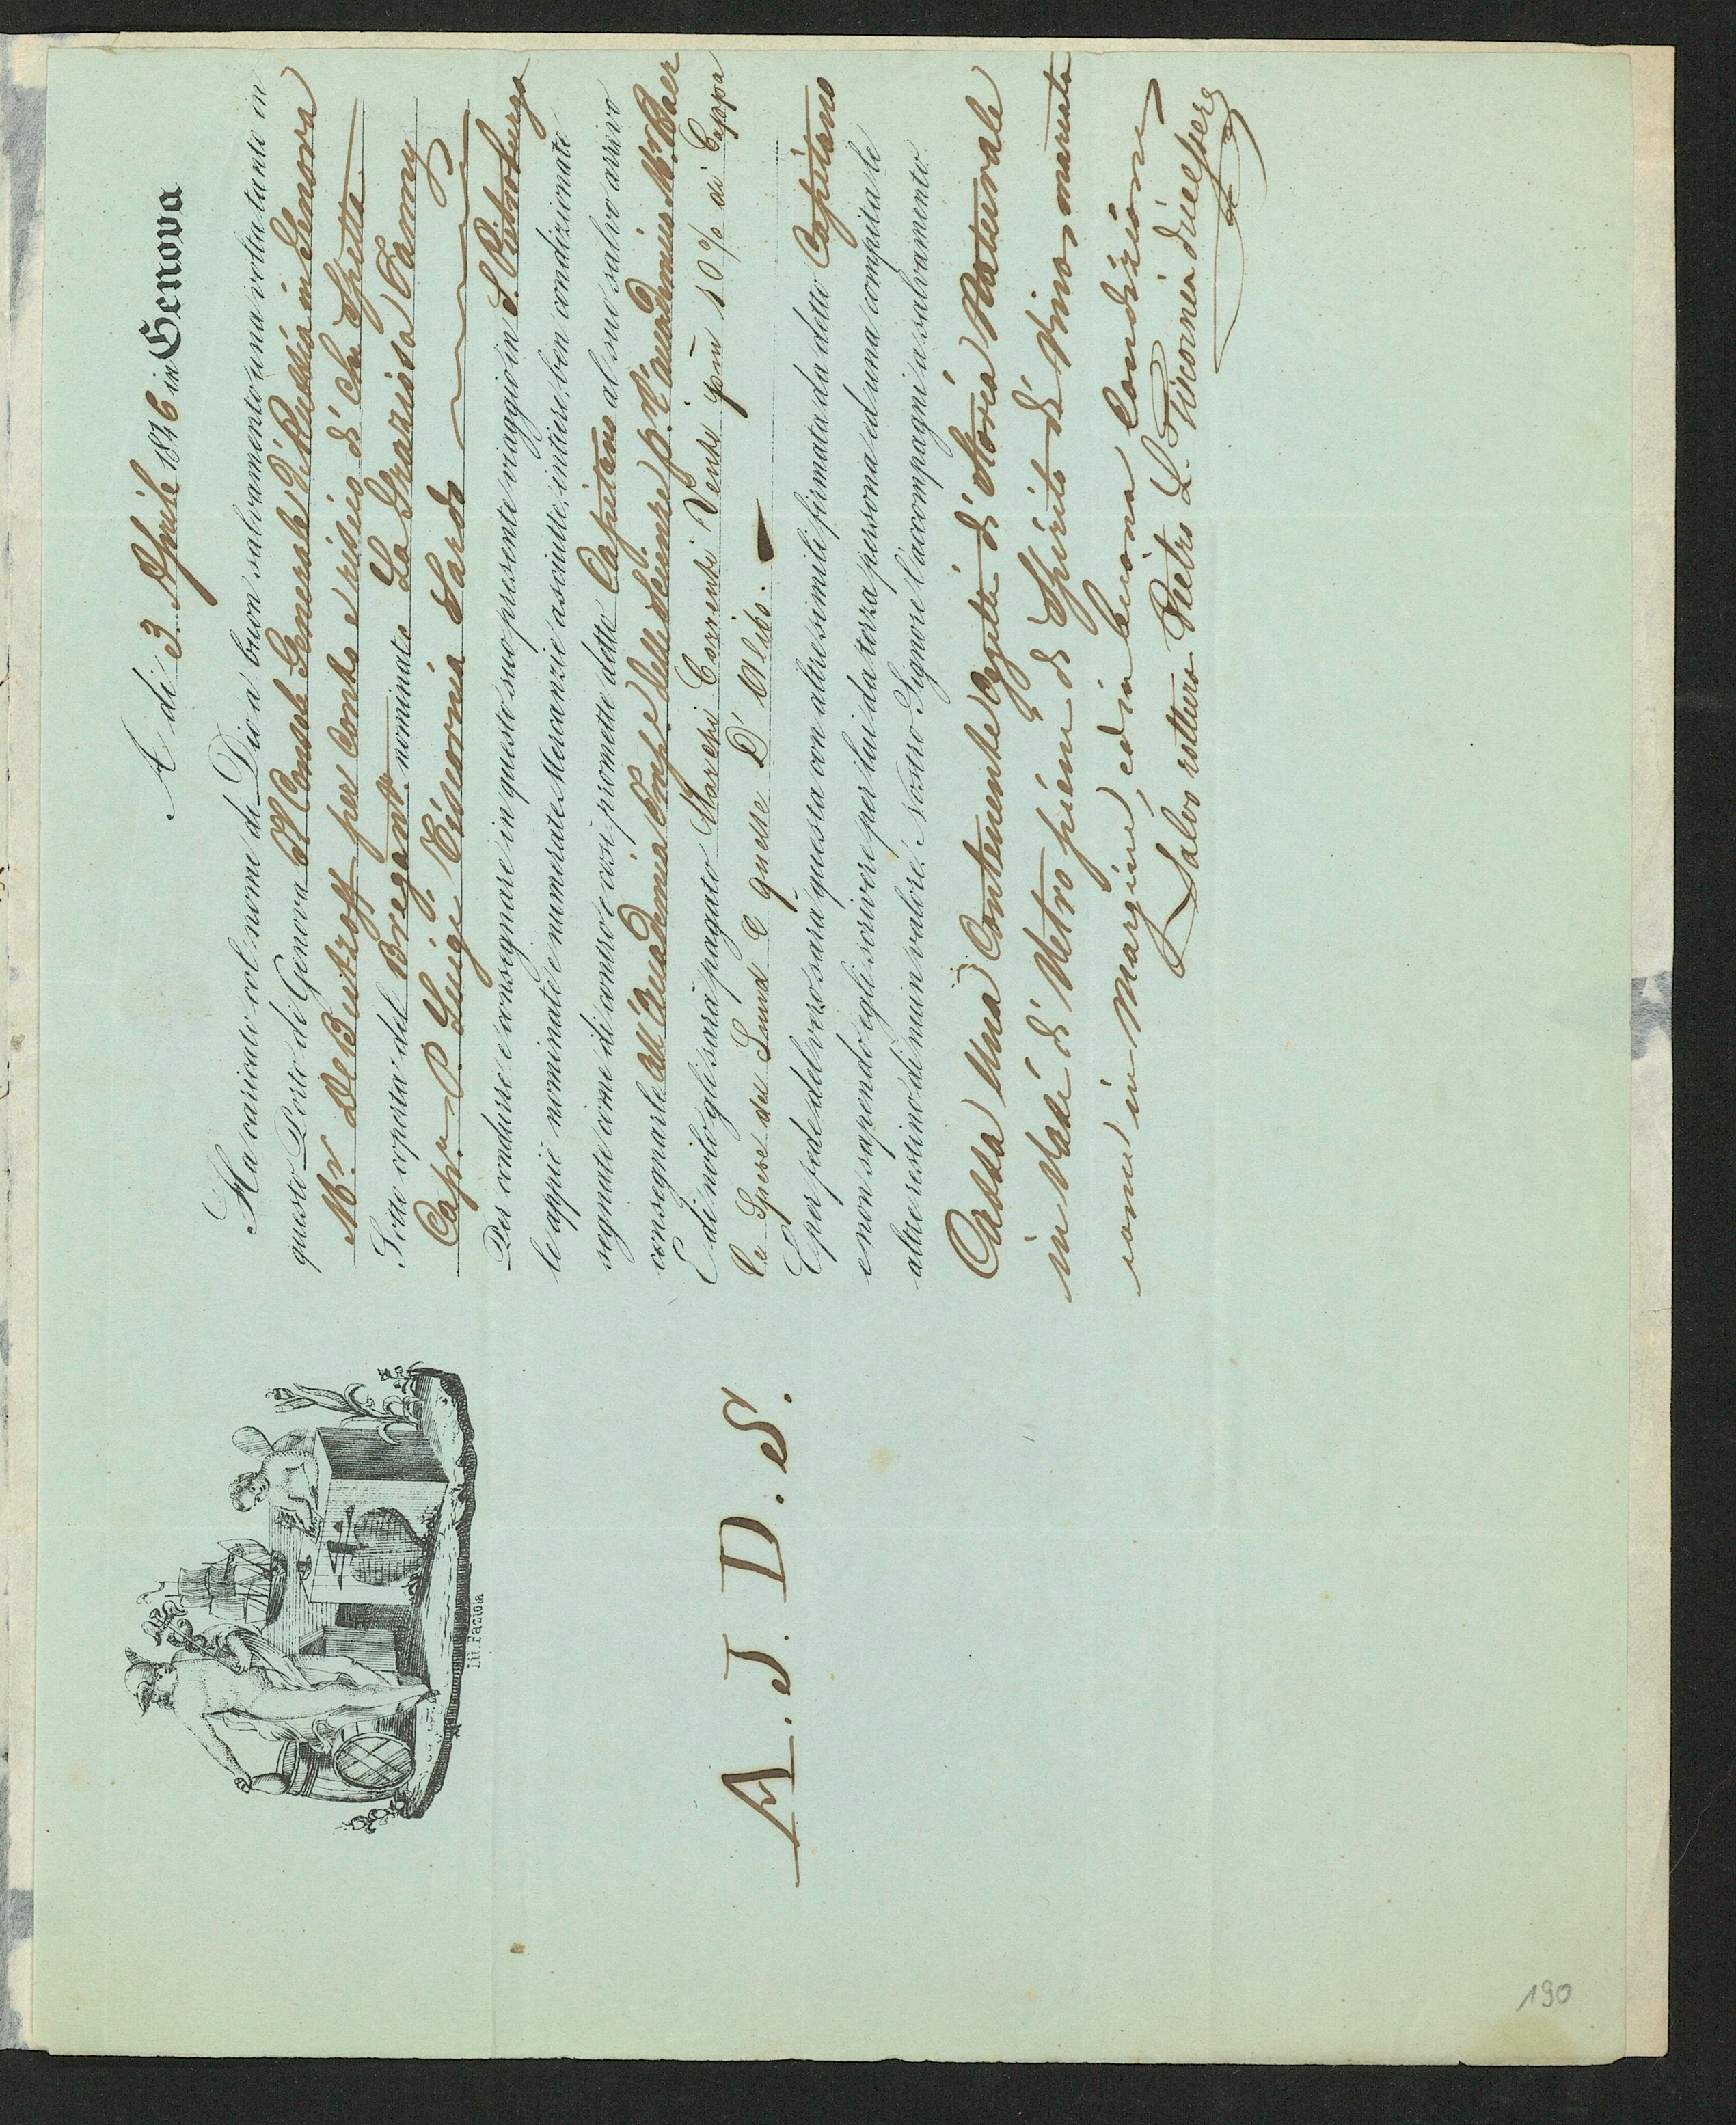 A di 3. Aprile 1846 in Genova
Ha caricato col nome di Dio a buon salvamento una volta tanto in
questo Porto di Genova Il Console Generale di Russia in Genova
Mr. De Beutzoff per Conto e risico di chi spetta
Sotto coperta del Brigantno. nominato La Graziosa Fanny
Capn. P. Luigi Visconia Sardo
Per condurre e consegnare in questo suo presente viaggio in S. Pietroburgo
le appiè nominate e numerate Mercanzie asciutte, intiere, ben condizionate
segnate come di contro e così promette detto Capitano al suo salvo arrivo
consegnarle All'Accademia Imple. delle Scienze p. l'accademico Mr. Baer
E di nolo gli sarà pagato Marchi Correnti Venti più 10 % di Cappa
le Spese del Sund e quelle D'Alibo.
E per fede del vero sarà questa con altre simili firmata da detto Capitano
e non sapendo egli scrivere per lui da terza persona ed una compita le
altre restino di niun valore. Nostro Signore l'accompagni a salvamento.
Cassa Una Contenente Oggetti di Storia Naturale
in Vasi di Vetro pieni di Spirito di Vino, marcata
come in margine, ed in buona Condizione
Salvo rotture Pietro L.
Lit. Pazioia
A. J. D. S.
190